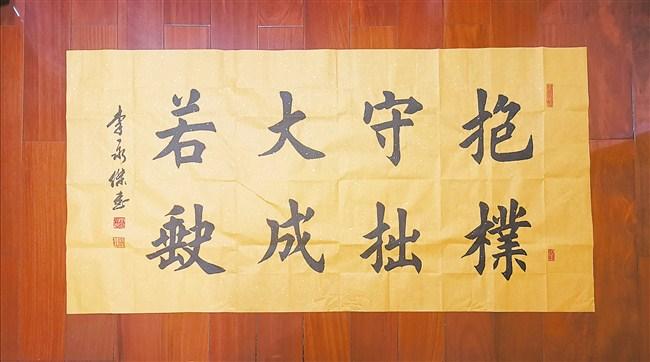 抱樸
守拙
大成
若缺
李永傑書